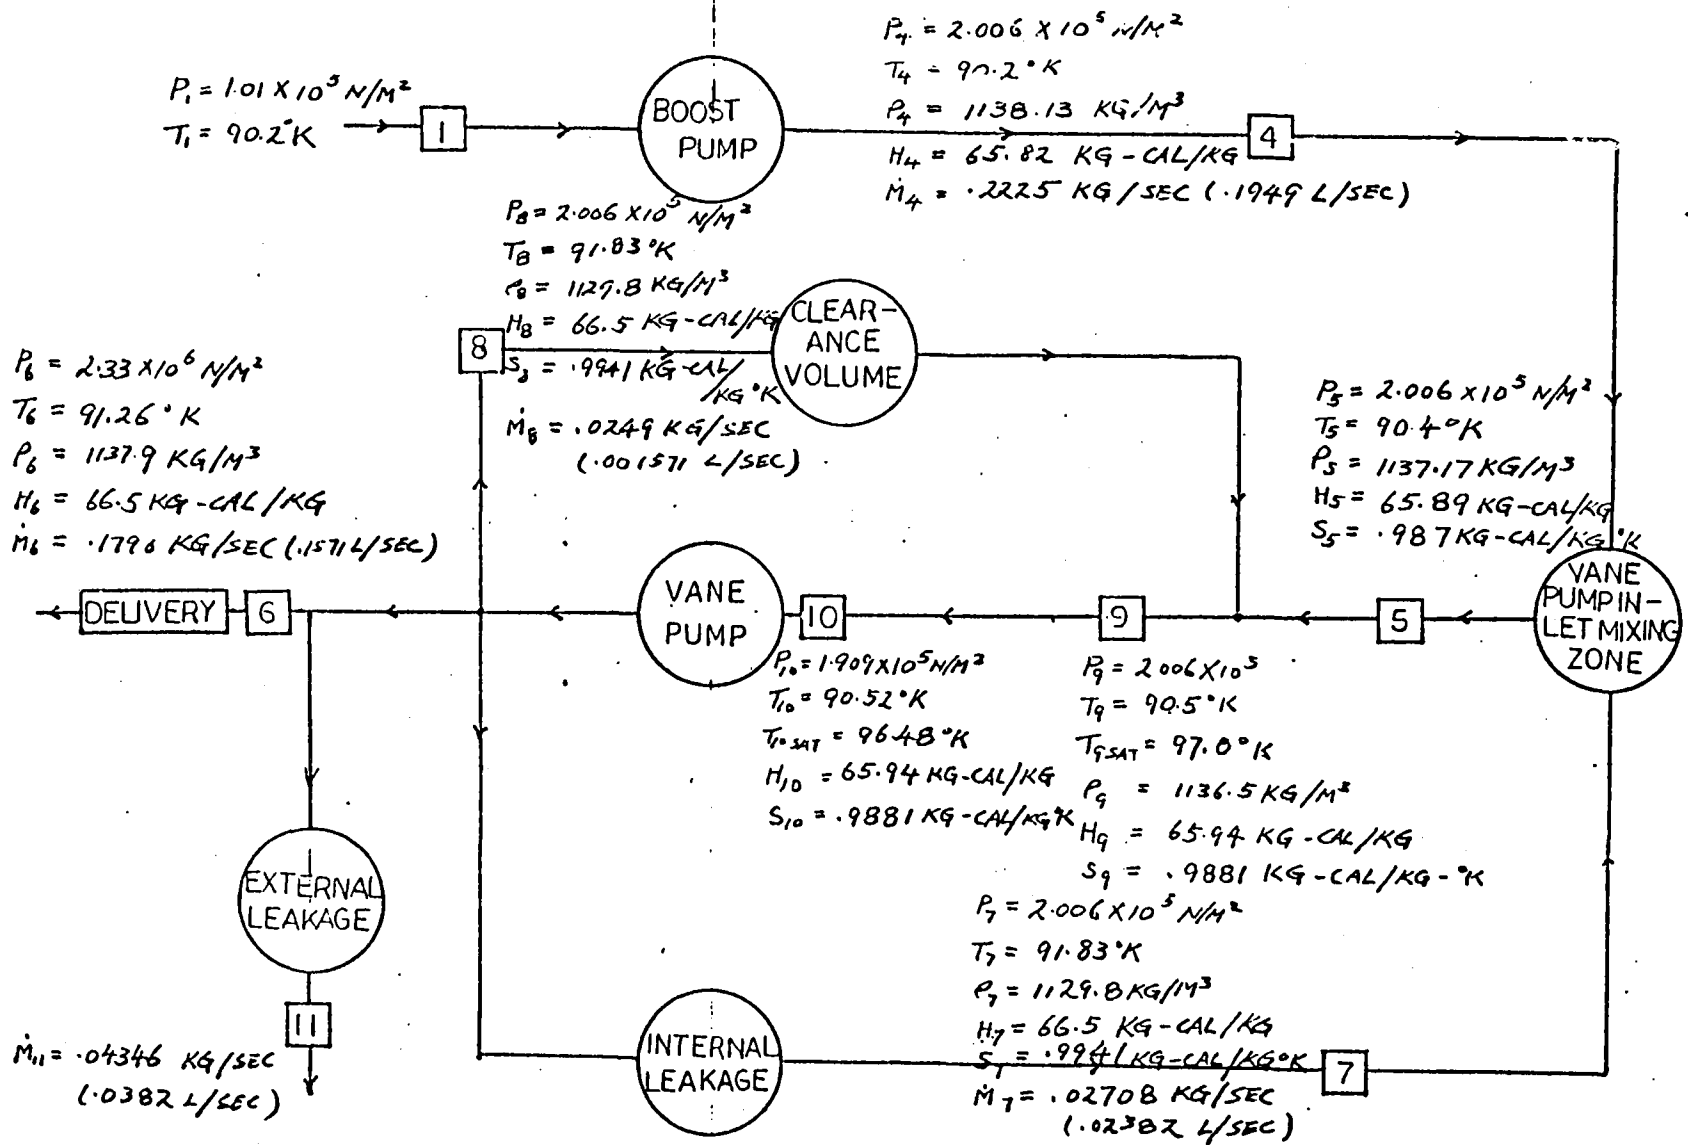 P₄ = 2.006 X 10⁵ N/M²
T₄ = 90.2°K
ρ₄ = 1138.13 KG/M³
H₄ = 65.82 KG-CAL/KG
Ṁ₄ = .2225 KG/SEC (.1949 L/SEC)
P₁ = 1.01 X 10⁵ N/M²
T₁ = 90.2°K
1
BOOST
PUMP
4
P₈ = 2.006 X10⁵ N/M²
T₈ = 91.83°K
ρ₈ = 1129.8 KG/M³
H₈ = 66.5 KG-CAL/KG
S₈ = .9941 KG-CAL/
KG°K
Ṁ₈ = .0249 KG/SEC
(.001571 L/SEC)
8
CLEAR-
ANCE
VOLUME
P₆ = 2.33 X10⁶ N/M²
T₆ = 91.26°K
ρ₆ = 1137.9 KG/M³
H₆ = 66.5 KG-CAL/KG
Ṁ₆ = .1790 KG/SEC (.1571 L/SEC)
P₅ = 2.006 X10⁵ N/M²
T₅ = 90.4°K
ρ₅ = 1137.17 KG/M³
H₅ = 65.89 KG-CAL/KG
S₅ = .987 KG-CAL/KG°K
DELIVERY
6
VANE
PUMP
10
9
5
VANE
PUMP IN-
LET MIXING
ZONE
P₁₀ = 1.909X10⁵ N/M²
T₁₀ = 90.52°K
T₁₀ SAT = 96.48°K
H₁₀ = 65.94 KG-CAL/KG
S₁₀ = .9881 KG-CAL/KG°K
P₉ = 2.006X10⁵
T₉ = 90.5°K
T₉ SAT = 97.0°K
ρ₉ = 1136.5 KG/M³
H₉ = 65.94 KG-CAL/KG
S₉ = .9881 KG-CAL/KG-°K
EXTERNAL
LEAKAGE
11
Ṁ₁₁ = .04346 KG/SEC
(.0382 L/SEC)
INTERNAL
LEAKAGE
P₇ = 2.006 X10⁵ N/M²
T₇ = 91.83°K
ρ₇ = 1129.8 KG/M³
H₇ = 66.5 KG-CAL/KG
S₇ = .9941 KG-CAL/KG°K
Ṁ₇ = .02708 KG/SEC
(.02382 L/SEC)
7